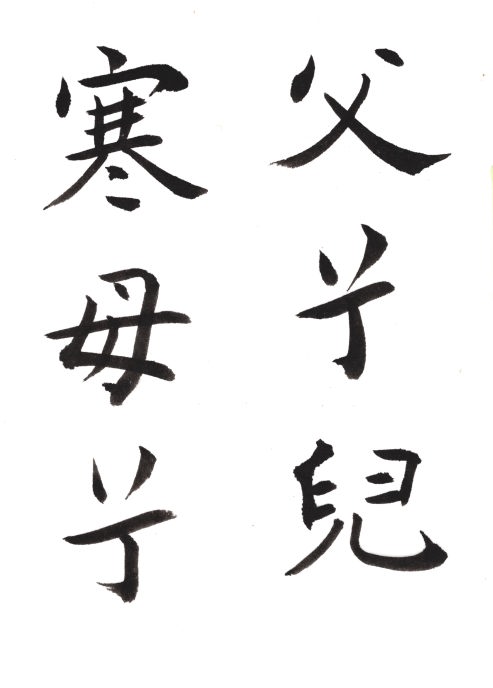 父兮兒
寒母兮